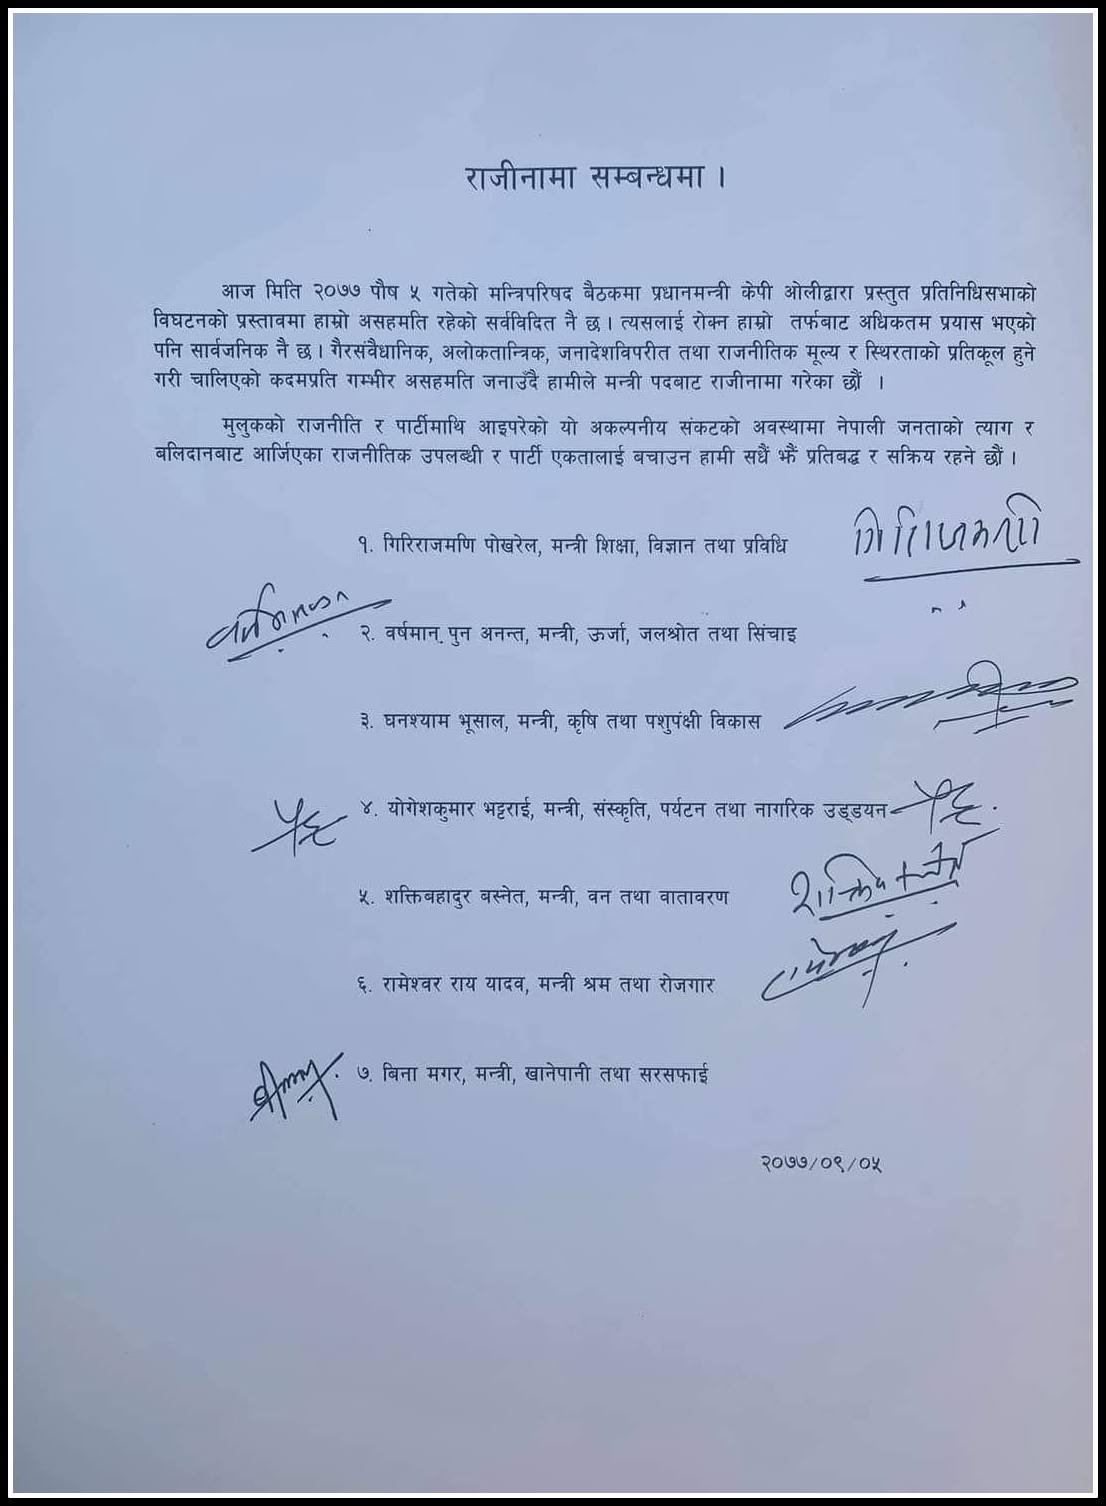 राजीनामा सम्बन्धमा ।
आज मिति २०७७ पौष ५ गतेको मन्त्रिपरिषद बैठकमा प्रधानमन्त्री केपी ओलीद्वारा प्रस्तुत प्रतिनिधिसभाको
विघटनको प्रस्तावमा हाम्रो असहमति रहेको सर्वविदित नै छ । त्यसलाई रोक्न हाम्रो तर्फबाट अधिकतम प्रयास भएको
पनि सार्वजनिक नै छ । गैरसंवैधानिक, अलोकतान्त्रिक, जनादेशविपरीत तथा राजनीतिक मूल्य र स्थिरताको प्रतिकूल हुने
गरी चालिएको कदमप्रति गम्भीर असहमति जनाउँदै हामीले मन्त्री पदबाट राजीनामा गरेका छौं ।
मुलुकको राजनीति र पार्टीमाथि आइपरेको यो अकल्पनीय संकटको अवस्थामा नेपाली जनताको त्याग र
बलिदानबाट आर्जिएका राजनीतिक उपलब्धी र पार्टी एकतालाई बचाउन हामी सधैं झैं प्रतिबद्ध र सक्रिय रहने छौं ।
१. गिरिराजमणि पोखरेल, मन्त्री शिक्षा, विज्ञान तथा प्रविधि
२. वर्षमान् पुन अनन्त, मन्त्री, ऊर्जा, जलश्रोत तथा सिंचाइ
३. घनश्याम भूसाल, मन्त्री, कृषि तथा पशुपंक्षी विकास
४. योगेशकुमार भट्टराई, मन्त्री, संस्कृति, पर्यटन तथा नागरिक उड्डयन
५. शक्तिबहादुर बस्नेत, मन्त्री, वन तथा वातावरण
६. रामेश्वर राय यादव, मन्त्री श्रम तथा रोजगार
७. बिना मगर, मन्त्री, खानेपानी तथा सरसफाई
२०७७/०९/०५